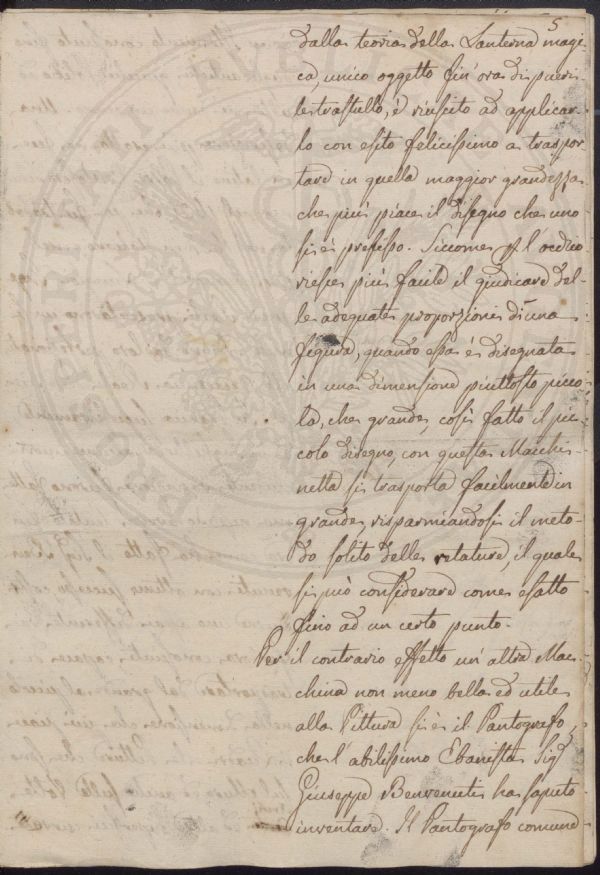 5
dalla teoria della Lanterna magi-
ca, unico oggetto fin'ora di pueri-
le trastullo, è riuscito ad applicar-
lo con esito felicissimo a traspor
tare in quella maggior grandezza
che più piace il disegno che uno
si è prefisso. Siccome all'ordio
riesce più facile il giudicare del-
le adequate proporzioni di una
figura, quando essa è disegnata
in una dimensione piuttosto picco
la, che grande, così fatto il pic
colo disegno, con questa Macchi
netta si trasporta facilmente in
grande, risparmiandosi il meto-
do solito delle retature, il quale
si può considerare come esatto
fino ad un certo punto.
Per il contrario effetto un'altra Mac-
china non meno bella ed utile
alla Pittura si è il Pantografo
che l'abilissimo Ebanista Sigr
Giuseppe Benvenuti ha saputo
inventare. Il Pantografo comune